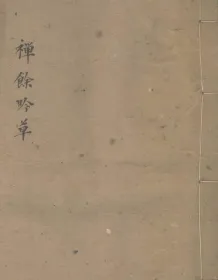 禪餘吟草